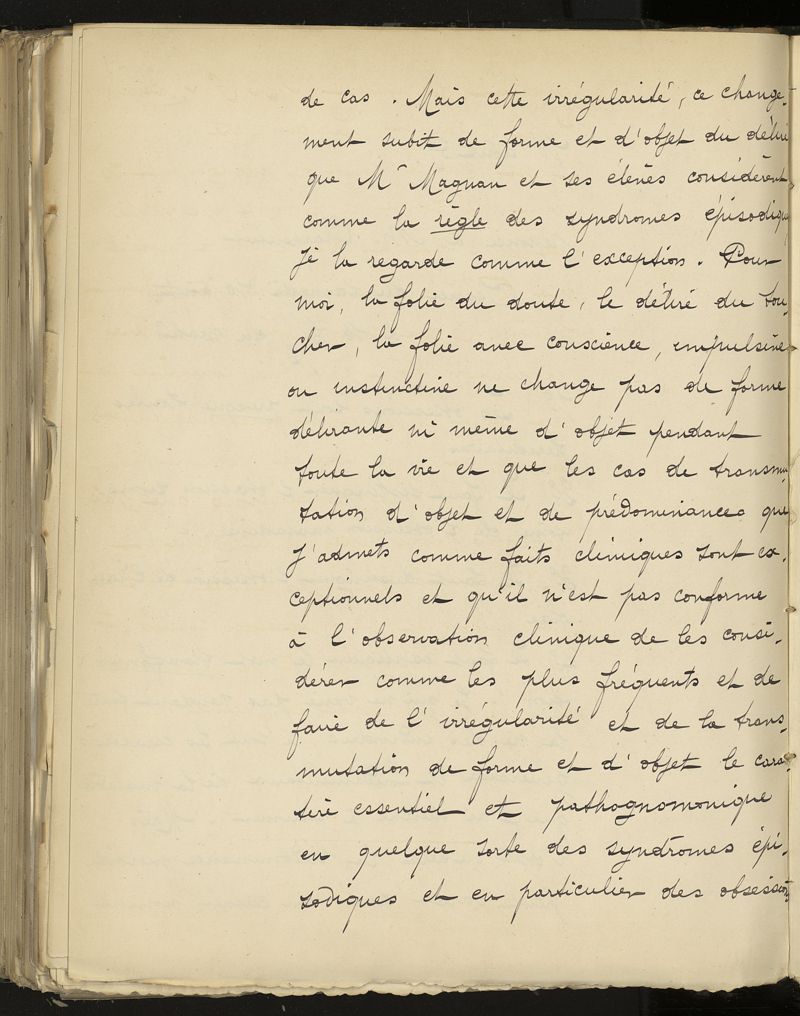 de cas. Mais cette irrégularité, ce change-
ment subit de forme et d'objet du délire
que Mr Magnan et ses élèves considèrent
comme la règle des syndromes épisodiques
je la regarde comme l'exception. Pour
moi, la folie du doute, le délire du tou-
cher, la folie avec conscience, impulsive
ou instinctive ne change pas de forme
délirante ni même d'objet pendant
toute la vie et que les cas de transmu-
tation d'objet et de prédominance que
j'admets comme faits cliniques sont ex-
ceptionnels et qu'il n'est pas conforme
à l'observation clinique de les consi-
dérer comme les plus fréquents et de
faire de l'irrégularité et de la trans-
mutation de forme et d'objet le carac-
tère essentiel et pathognomonique
en quelque sorte des syndromes épi-
sodiques et en particulier des obsessions